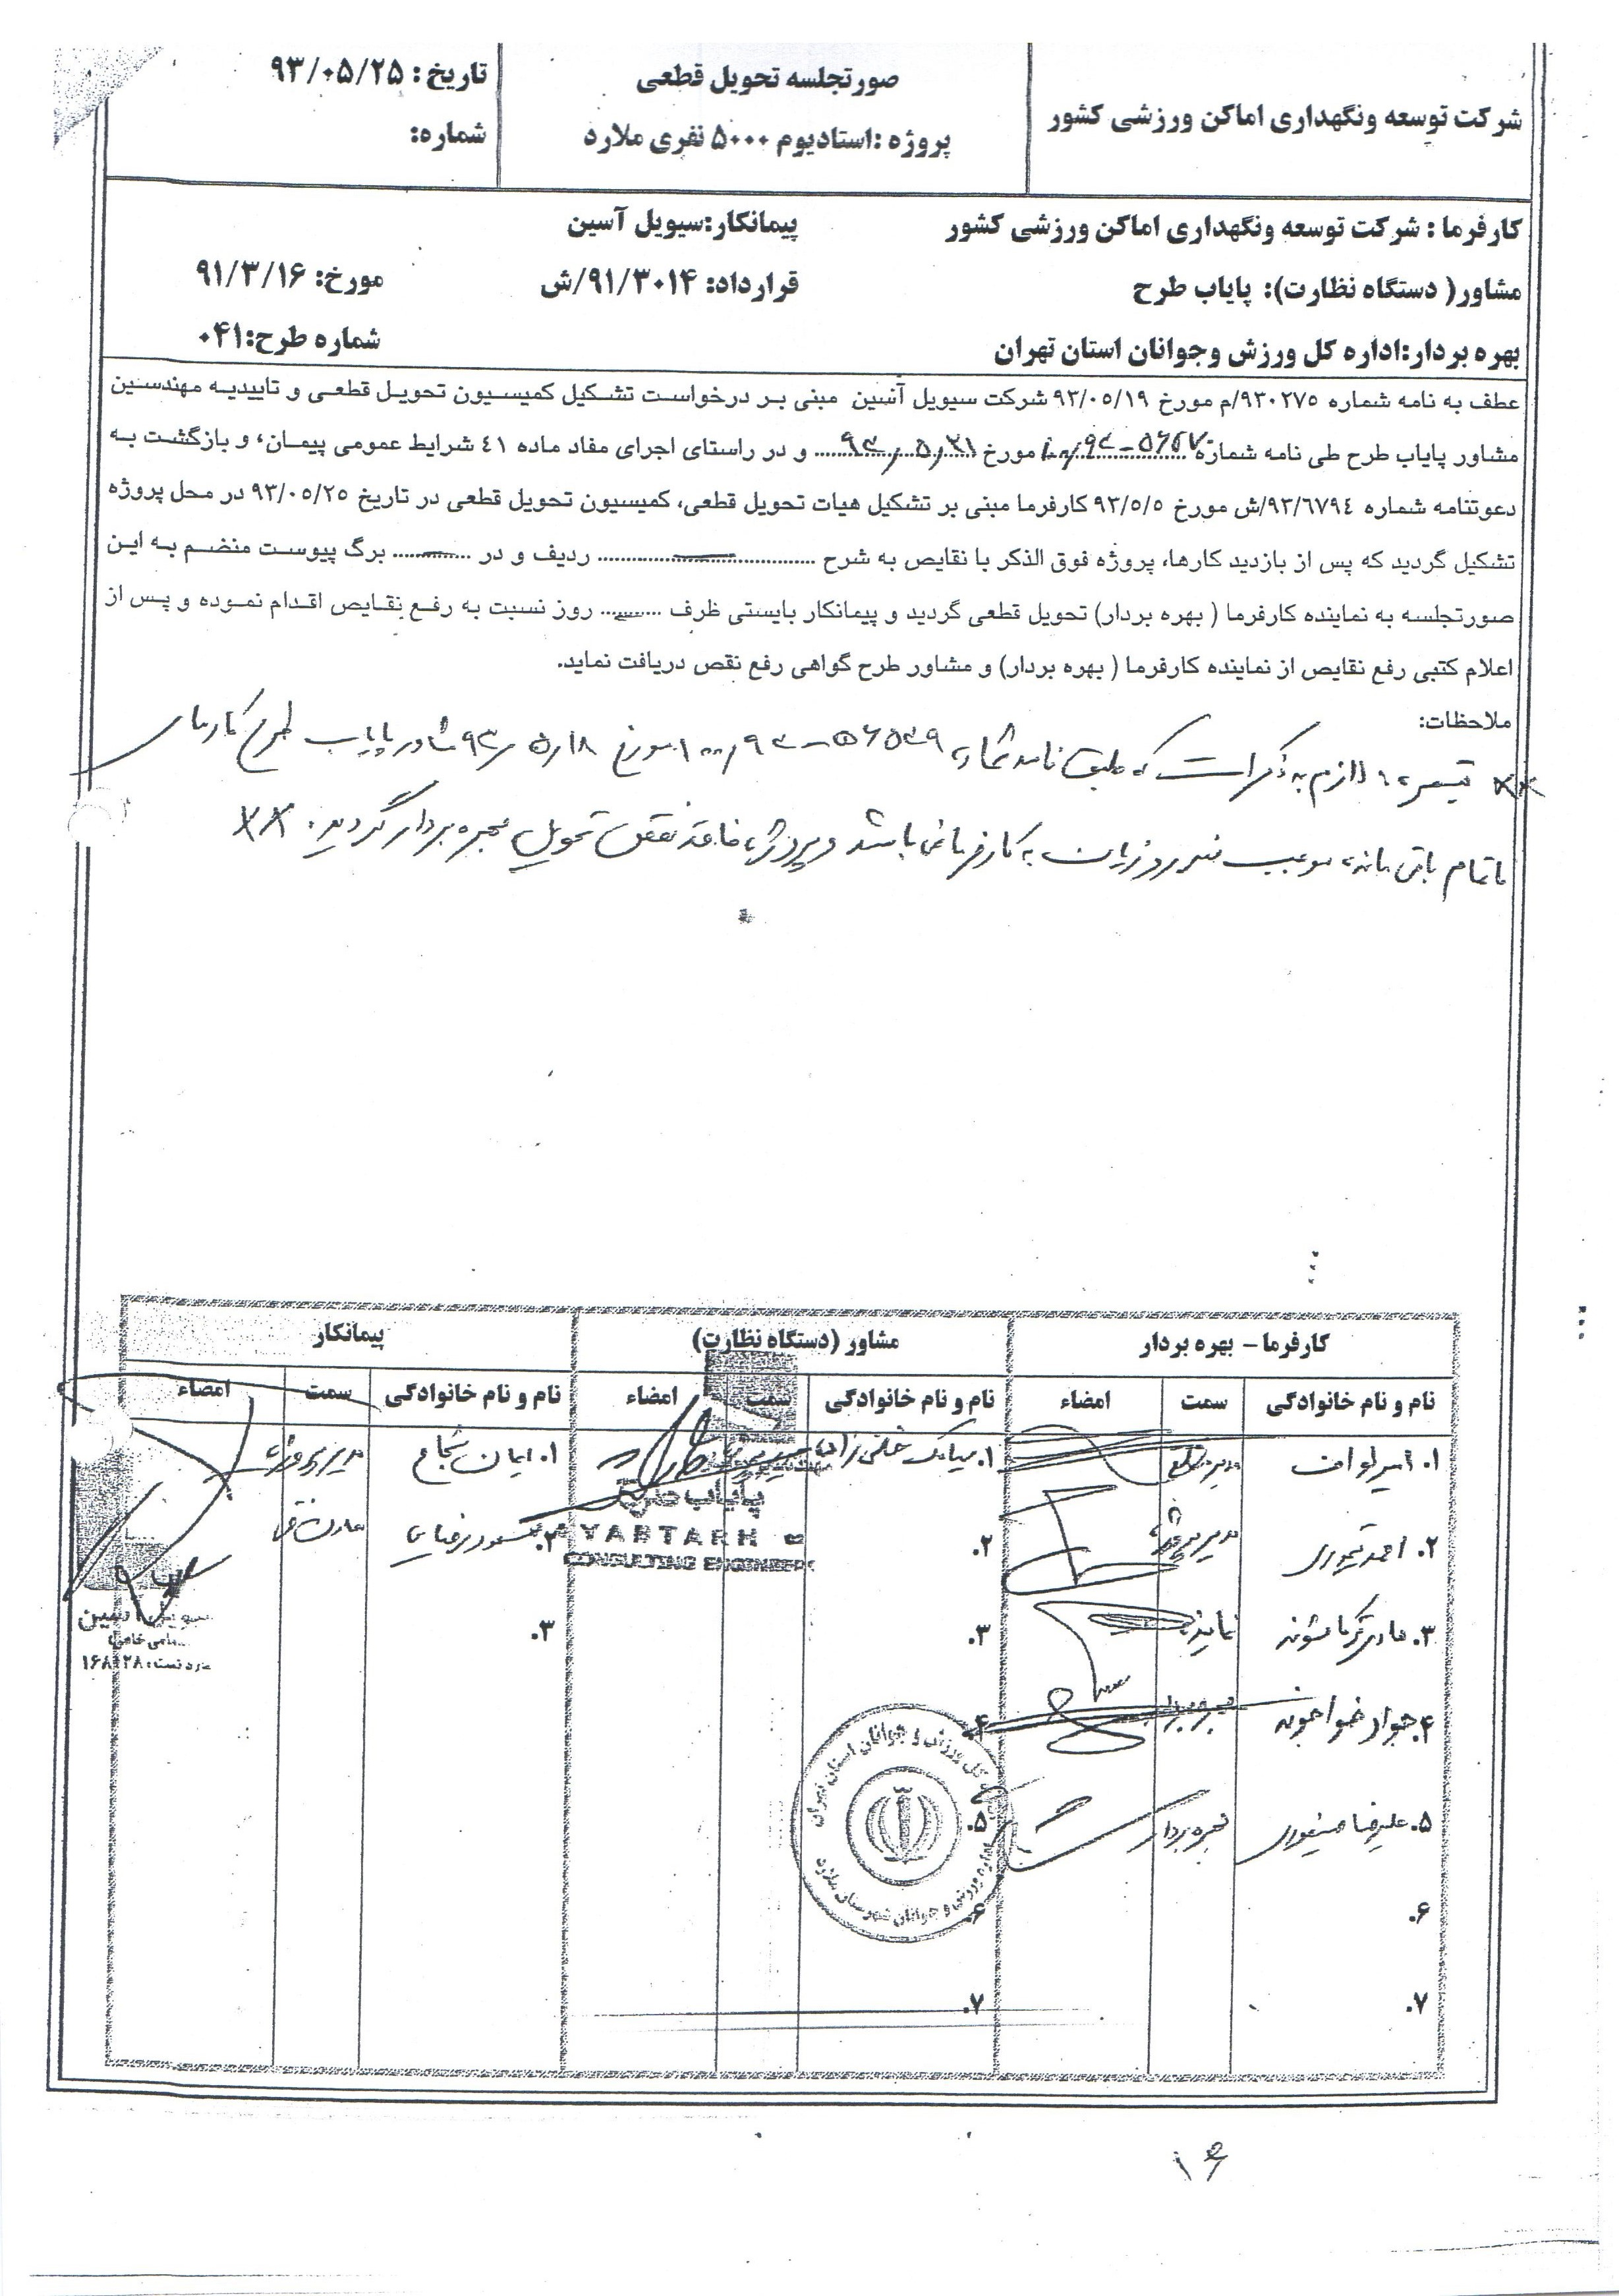 شرکت توسعه ونگهداری اماکن ورزشی کشور
صورتجلسه تحویل قطعی
پروژه :استادیوم ۵۰۰۰ نفری ملارد
تاریخ : ۹۳/۰۵/۲۵
شماره:
کارفرما : شرکت توسعه ونگهداری اماکن ورزشی کشور
پیمانکار:سیویل آسین
مشاور( دستگاه نظارت): پایاب طرح
قرارداد: ۹۱/۳۰۱۴/ش
مورخ: ۹۱/۳/۱۶
بهره بردار:اداره کل ورزش وجوانان استان تهران
شماره طرح:۰۴۱
عطف به نامه شماره ۹۳۰۲۷۵/م مورخ ۹۳/۰۵/۱۹ شرکت سیویل آسین مبنی بر درخواست تشکیل کمیسیون تحویل قطعی و تاییدیه مهندسین
مشاور پایاب طرح طی نامه شماره مورخ و در راستای اجرای مفاد ماده ٤١ شرایط عمومی پیمان، و بازگشت به
دعوتنامه شماره ۹۳/٦٧٩٤/ش مورخ ۹۳/٥/٥ کارفرما مبنی بر تشکیل هیات تحویل قطعی، کمیسیون تحویل قطعی در تاریخ ۹۳/۰۵/۲۵ در محل پروژه
تشکیل گردید که پس از بازدید کارها، پروژه فوق الذکر با نقایص به شرح .................... ردیف و در ............ برگ پیوست منضم به این
صورتجلسه به نماینده کارفرما ( بهره بردار) تحویل قطعی گردید و پیمانکار بایستی ظرف .......... روز نسبت به رفع نقایص اقدام نموده و پس از
اعلام کتبی رفع نقایص از نماینده کارفرما ( بهره بردار) و مشاور طرح گواهی رفع نقص دریافت نماید.
ملاحظات:
لازم به ذکر است که طبق نامه شماره مورخ ۹۳/۵/۱۸ مشاور پایاب طرح کارهای
ناتمام باقی مانده موجب ضرر و زیان به کارفرما نمی باشد و پروژه فاقد نقص تحویل بهره بردار گردید.
کارفرما - بهره بردار
مشاور (دستگاه نظارت)
پیمانکار
نام و نام خانوادگی سمت امضاء
نام و نام خانوادگی سمت امضاء
نام و نام خانوادگی سمت امضاء
۱.
۱. سیامک
۱. ایمان شجاع مدیر پروژه
۲. احمد تیموری مدیر پروژه
۲.
۲. مسعود رضایی معاون فنی
پایاب طرح
PAYABTARH
CONSULTING ENGINEERS
۳. نماینده
۳.
۳.
سیویل آسین
۴. جواد بهره بردار
۴.
۵. علیرضا منصوری بهره بردار
۵.
اداره کل ورزش و جوانان استان تهران
اداره ورزش و جوانان شهرستان ملارد
۶.
۶.
۷.
۷.
۱۶